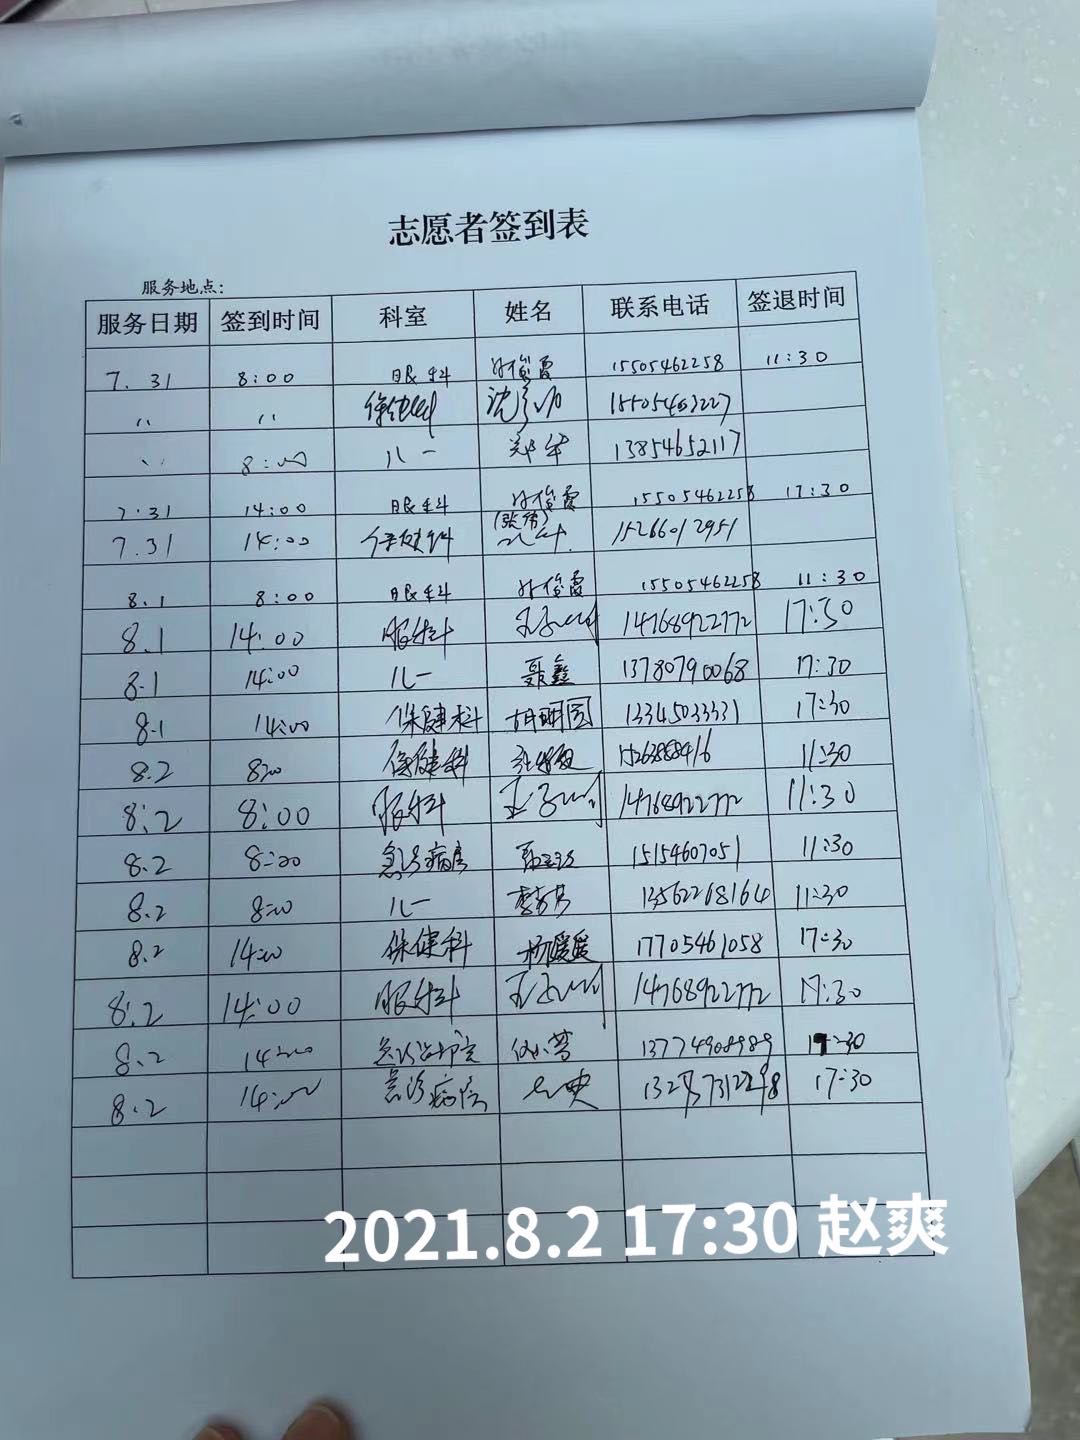 志愿者签到表
服务地点：
服务日期 签到时间 科室 姓名 联系电话 签退时间
7.31 8:00 眼科 孙俊霞 15505462258 11:30
〃 〃 保健科 15505463227
〃 8:00 儿一 郑华 13854652117
7.31 14:00 眼科 孙俊霞 15505462258 17:30
7.31 14:00 保健科 (张伟) 15266012951
8.1 8:00 眼科 孙俊霞 15505462258 11:30
8.1 14:00 眼科 14768922772 17:30
8.1 14:00 儿一 聂鑫 13780790068 17:30
8.1 14:00 保健科 胡明圆 13345033331 17:30
8.2 8:00 保健科 11:30
8:2 8:00 眼科 14768922772 11:30
8.2 8:00 急诊病房 15154607051 11:30
8.2 8:00 儿一 李芳芳 13562268164 11:30
8.2 14:00 保健科 杨媛媛 17705461058 17:30
8:2 14:00 眼科 14768922772 17:30
8.2 14:00 13774908989 17:30
8.2 14:00 急诊病房 17:30
2021.8.2 17:30 赵爽